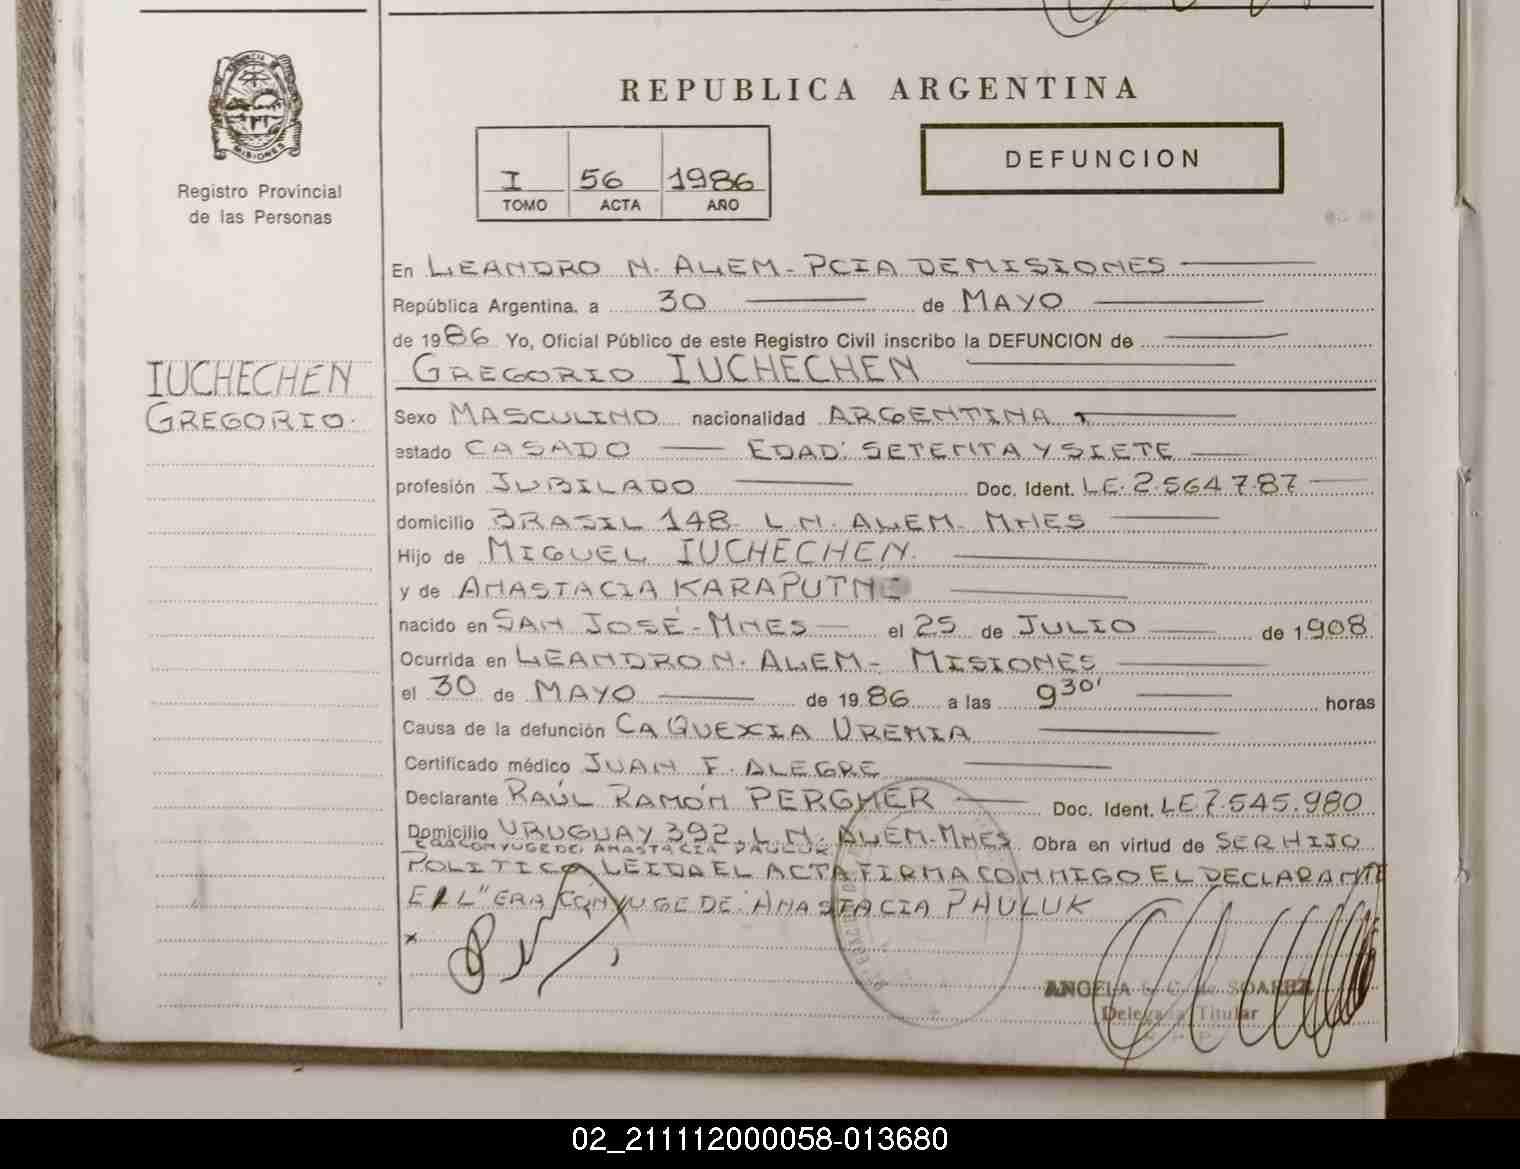 REPUBLICA ARGENTINA
MISIONES
Registro Provincial
de las Personas
I 56 1986
TOMO ACTA AÑO
DEFUNCION
En LEANDRO N. ALEM - PCIA DE MISIONES
República Argentina, a 30 de MAYO
de 1986 Yo, Oficial Público de este Registro Civil inscribo la DEFUNCION de
GREGORIO IUCHECHEN
IUCHECHEN
GREGORIO.
Sexo MASCULINO nacionalidad ARGENTINA
estado CASADO EDAD: SETENTA Y SIETE
profesión JUBILADO Doc. Ident. LE. 2.564787
domicilio BRASIL 148 L N. ALEM- MNES
Hijo de MIGUEL IUCHECHEN.
y de ANASTACIA
nacido en SAN JOSÉ - MNES el 25 de JULIO de 1908
Ocurrida en LEANDRO N. ALEM - MISIONES
el 30 de MAYO de 1986 a las 9 30' horas
Causa de la defunción CAQUEXIA UREMIA
Certificado médico JUAN F. ALEGRE
Declarante RAÚL RAMÓN PERGHER Doc. Ident. LE 7.545.980
Domicilio URUGUAY 392. L N. ALEM-MNES Obra en virtud de SER HIJO
ERA CONYUGE DE: ANASTACIA PAULUK
POLITICO LEIDA EL ACTA FIRMA CONMIGO EL DECLARANTE
E/L "ERA CONYUGE DE: ANASTACIA PAULUK
x
ANGELA C. de SOAREZ
Delegada Titular
02_211112000058-013680